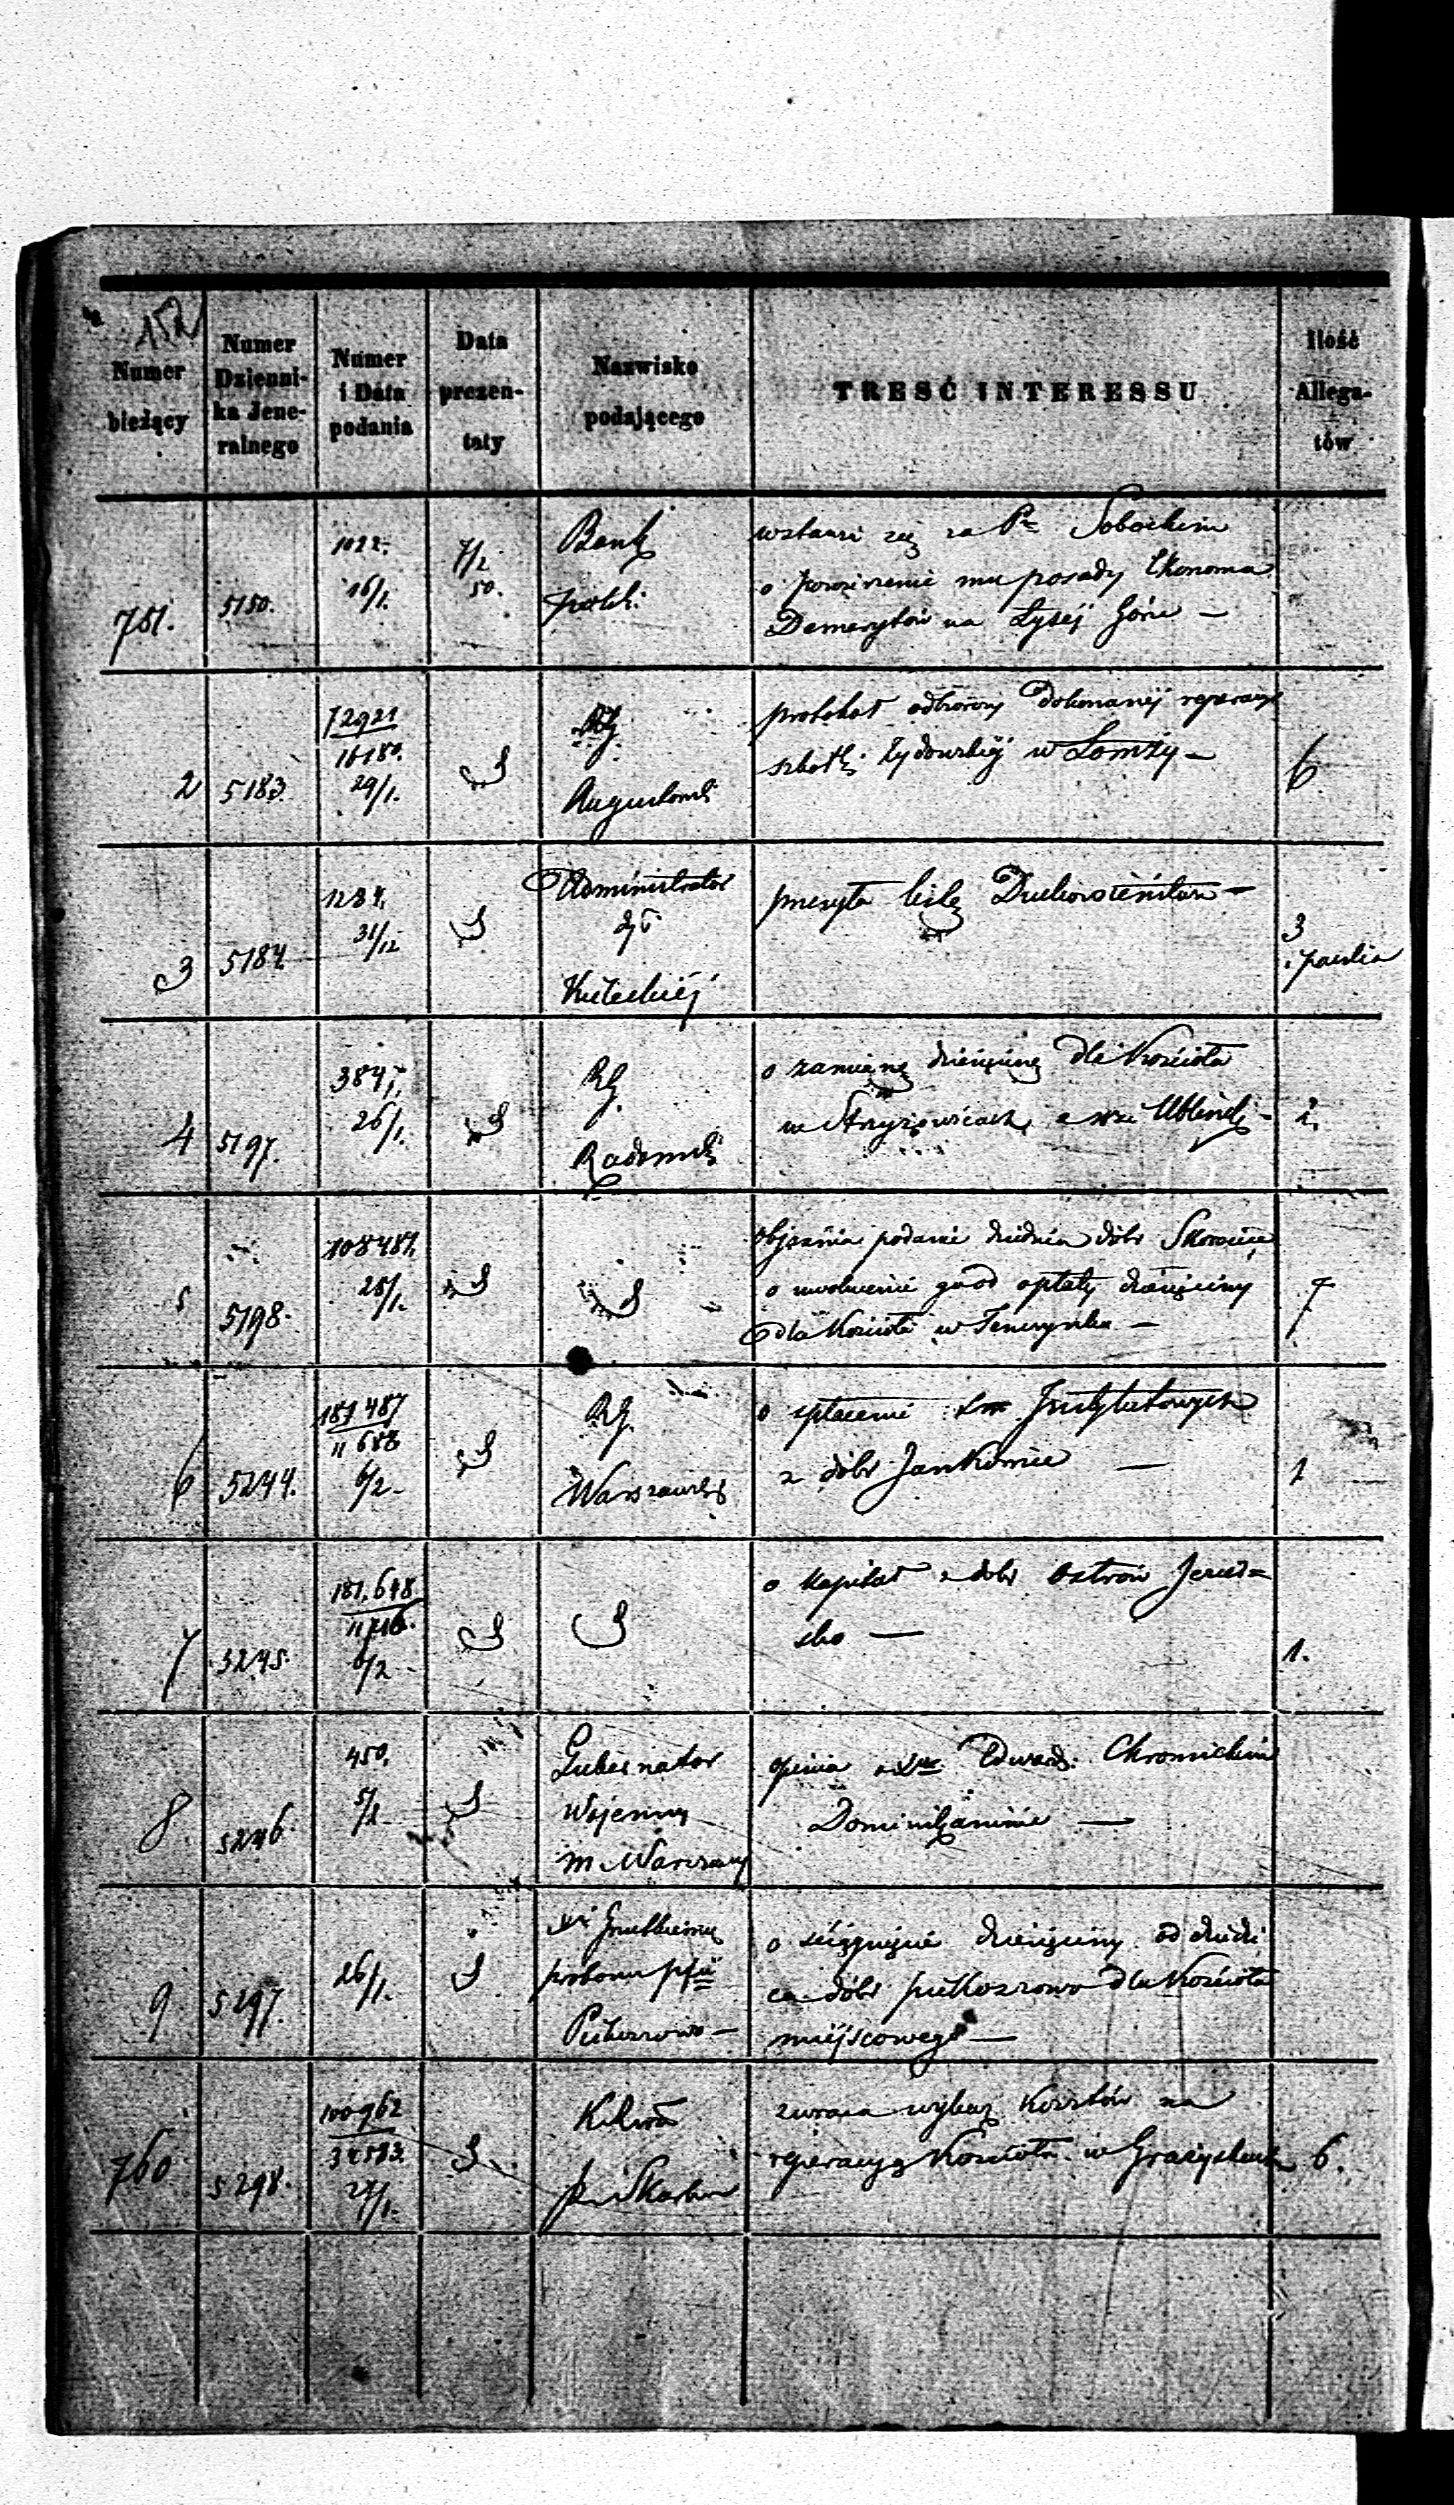 152
Numer
bieżący
Numer
Dzienni-
ka Jene-
ralnego
Numer
i Data
podania
Data
prezen-
taty
Nazwisko
podającego
TRESĆ INTERESSU
Ilość
Allega-
tów
751.
5150.
1022.
16/1.
7/2
50.
Bank
polski
wstawi się za Pem Sobockim
o powierzenie mu posady Ekonoma
Demerytów na Łysej Górze —
2
5183.
12921
16180.
29/1.
RG
Augustowski
protokół odbiorczy dokonanej reperacyi
szkółki żydowskiej w Łomży —
6
3
5184
1284.
31/12
Administrator
Dyec
Kieleckiej
przesyła listę Duchowieństwa —
3
i paczka
4
5197.
384
26/1.
RG.
Radomski
o zamianę dziesięciny dla Kościoła
w Stryżowicach
5
5198.
108484
25/1.
objaśnia podanie dziedzica dóbr
o uwolnienie go od opłaty dziesięciny
dla Kościoła w Tenczynku —
7
6
5244.
187487
11688
6/2
RG.
Warszawski
o spłacenie Summ Instytutowych
z dóbr Jankowice —
1
7
5245.
187.648
11716.
6/2
o Kapitał z dóbr Ostrów
1.
8
5246
450.
5/2
Gubernator
Wojenny
m. Warszawy
opinia o Xdzu Edward. Chromickim
Dominikaninie —
9
5297.
26/1.
proboszcz pfii
o ściągnięcie dziesięciny od dziedzi
ca dóbr dla Kościoła
miejscowego —
760
5298.
100962
34583.
24/1.
KRwa
P. i Skarbu
zwraca wykaz kosztów na
reperacyą Kościoła w
6.